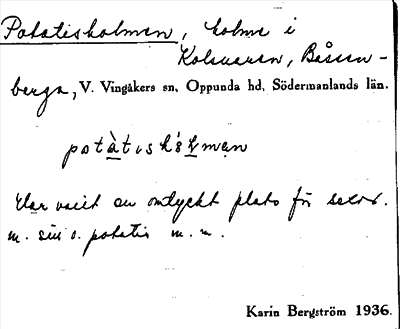 Potatisholmen, holme i
Kolsnaren, Båsen-
berga, V. Vingåkers sn, Oppunda hd, Södermanlands län.
potàtishólmen
Har varit en omtyckt plats för
m. sill o. potatis m. m.
Karin Bergström 1936.